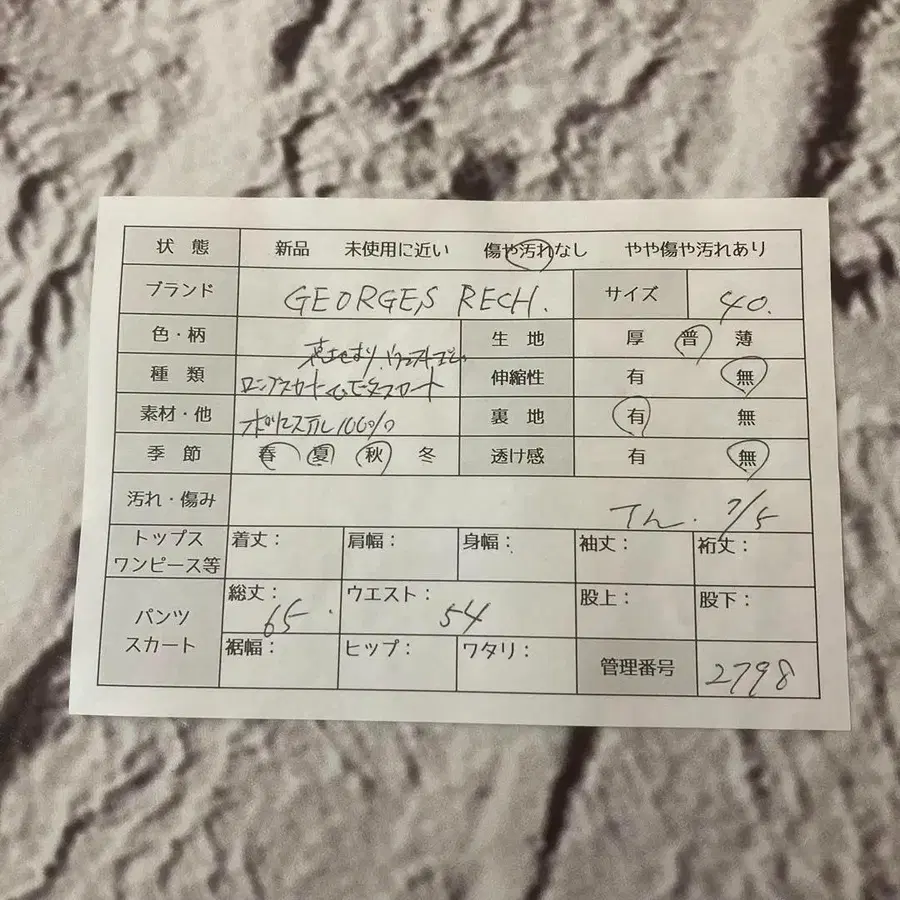 状態 新品 未使用に近い 傷や汚れなし やや傷や汚れあり
ブランド GEORGES RECH. サイズ 40.
色・柄 生地 厚 普 薄
種類 ロングスカート 伸縮性 有 無
素材・他 ポリエステル100% 裏地 有 無
季節 春 夏 秋 冬 透け感 有 無
汚れ・傷み 7/5
トップス ワンピース等 着丈: 肩幅: 身幅: 袖丈: 裄丈:
パンツ スカート 総丈: 65 ウエスト: 54 股上: 股下:
裾幅: ヒップ: ワタリ: 管理番号 2798